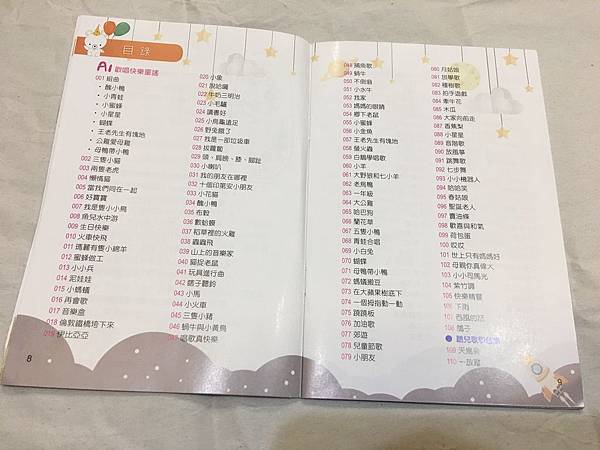 目錄
AI 歡唱快樂童謠
001 組曲
• 醜小鴨
• 小青蛙
• 小蜜蜂
• 小星星
• 蝴蝶
• 王老先生有塊地
• 公雞愛母雞
• 母鴨帶小鴨
002 三隻小貓
003 兩隻老虎
004 懶惰貓
005 當我們同在一起
006 好寶寶
007 我是隻小小鳥
008 魚兒水中游
009 生日快樂
010 火車快飛
011 瑪麗有隻小綿羊
012 蜜蜂做工
013 小小兵
014 泥娃娃
015 小螞蟻
016 再會歌
017 音樂盒
018 倫敦鐵橋垮下來
019 伊比亞亞
020 小象
021 說哈囉
022 牛奶三明治
023 小毛驢
024 讀書好
025 小烏龜遠足
026 野兔餓了
027 我是一部垃圾車
028 拔蘿蔔
029 頭、肩膀、膝、腳趾
030 小喇叭
031 我的朋友在哪裡
032 十個印第安小朋友
033 小花貓
034 醜小鴨
035 布穀
036 數蛤蟆
037 稻草裡的火雞
038 蟲蟲飛
039 山上的音樂家
040 貓捉老鼠
041 玩具進行曲
042 瞎子聽鈴
043 小馬
044 小火車
045 三隻小豬
046 蝸牛與小黃鳥
047 唱歌真快樂
8
048 捕魚歌
049 蝸牛
050 不倒翁
051 小水牛
052 找家
053 媽媽的眼睛
054 鄉下老鼠
055 小蜜蜂
056 小金魚
057 王老先生有塊地
058 螢火蟲
059 白鵝學唱歌
060 小羊
061 大野狼和七小羊
062 老烏鴉
063 一年級
064 大公雞
065 哈巴狗
066 蘭花草
067 五隻小鴨
068 青蛙合唱
069 小白兔
070 蝴蝶
071 母鴨帶小鴨
072 螞蟻搬豆
073 在大蘋果樹底下
074 一個拇指動一動
075 蹺蹺板
076 加油歌
077 郊遊
078 兒童節歌
079 小朋友
080 月姑娘
081 放學歌
082 種樹歌
083 拍手遊戲
084 牽牛花
085 木瓜
086 大家向前走
087 香蕉梨
088 小星星
089 音階歌
090 放風箏
091 跳舞歌
092 七步舞
093 小小機器人
094 哈哈笑
095 春姑娘
096 聖誕老人
097 賣油條
098 歡喜與和氣
099 荷包蛋
100 哎哎
101 世上只有媽媽好
102 母親你真偉大
103 小小司馬光
104 紫竹調
105 快樂精靈
106 下雨
107 西風的話
108 鴿子
109 天烏烏
110 一放雞
9